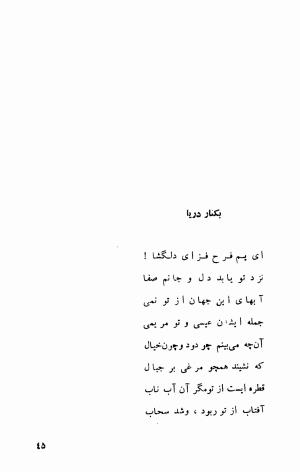 بکنار دریا
ای یم فرح فزای دلگشا !
نزد تو یابد دل و جانم صفا
آبهای این جهان از تو نمی
جمله ایشان عیسی و تو مریمی
آن‌چه می‌بینم چو دود وچون‌خیال
که نشیند همچو مرغی بر جبال
قطره ایست از تومگر آن آب ناب
آفتاب از تو ربود ، وشد سحاب
٤٥